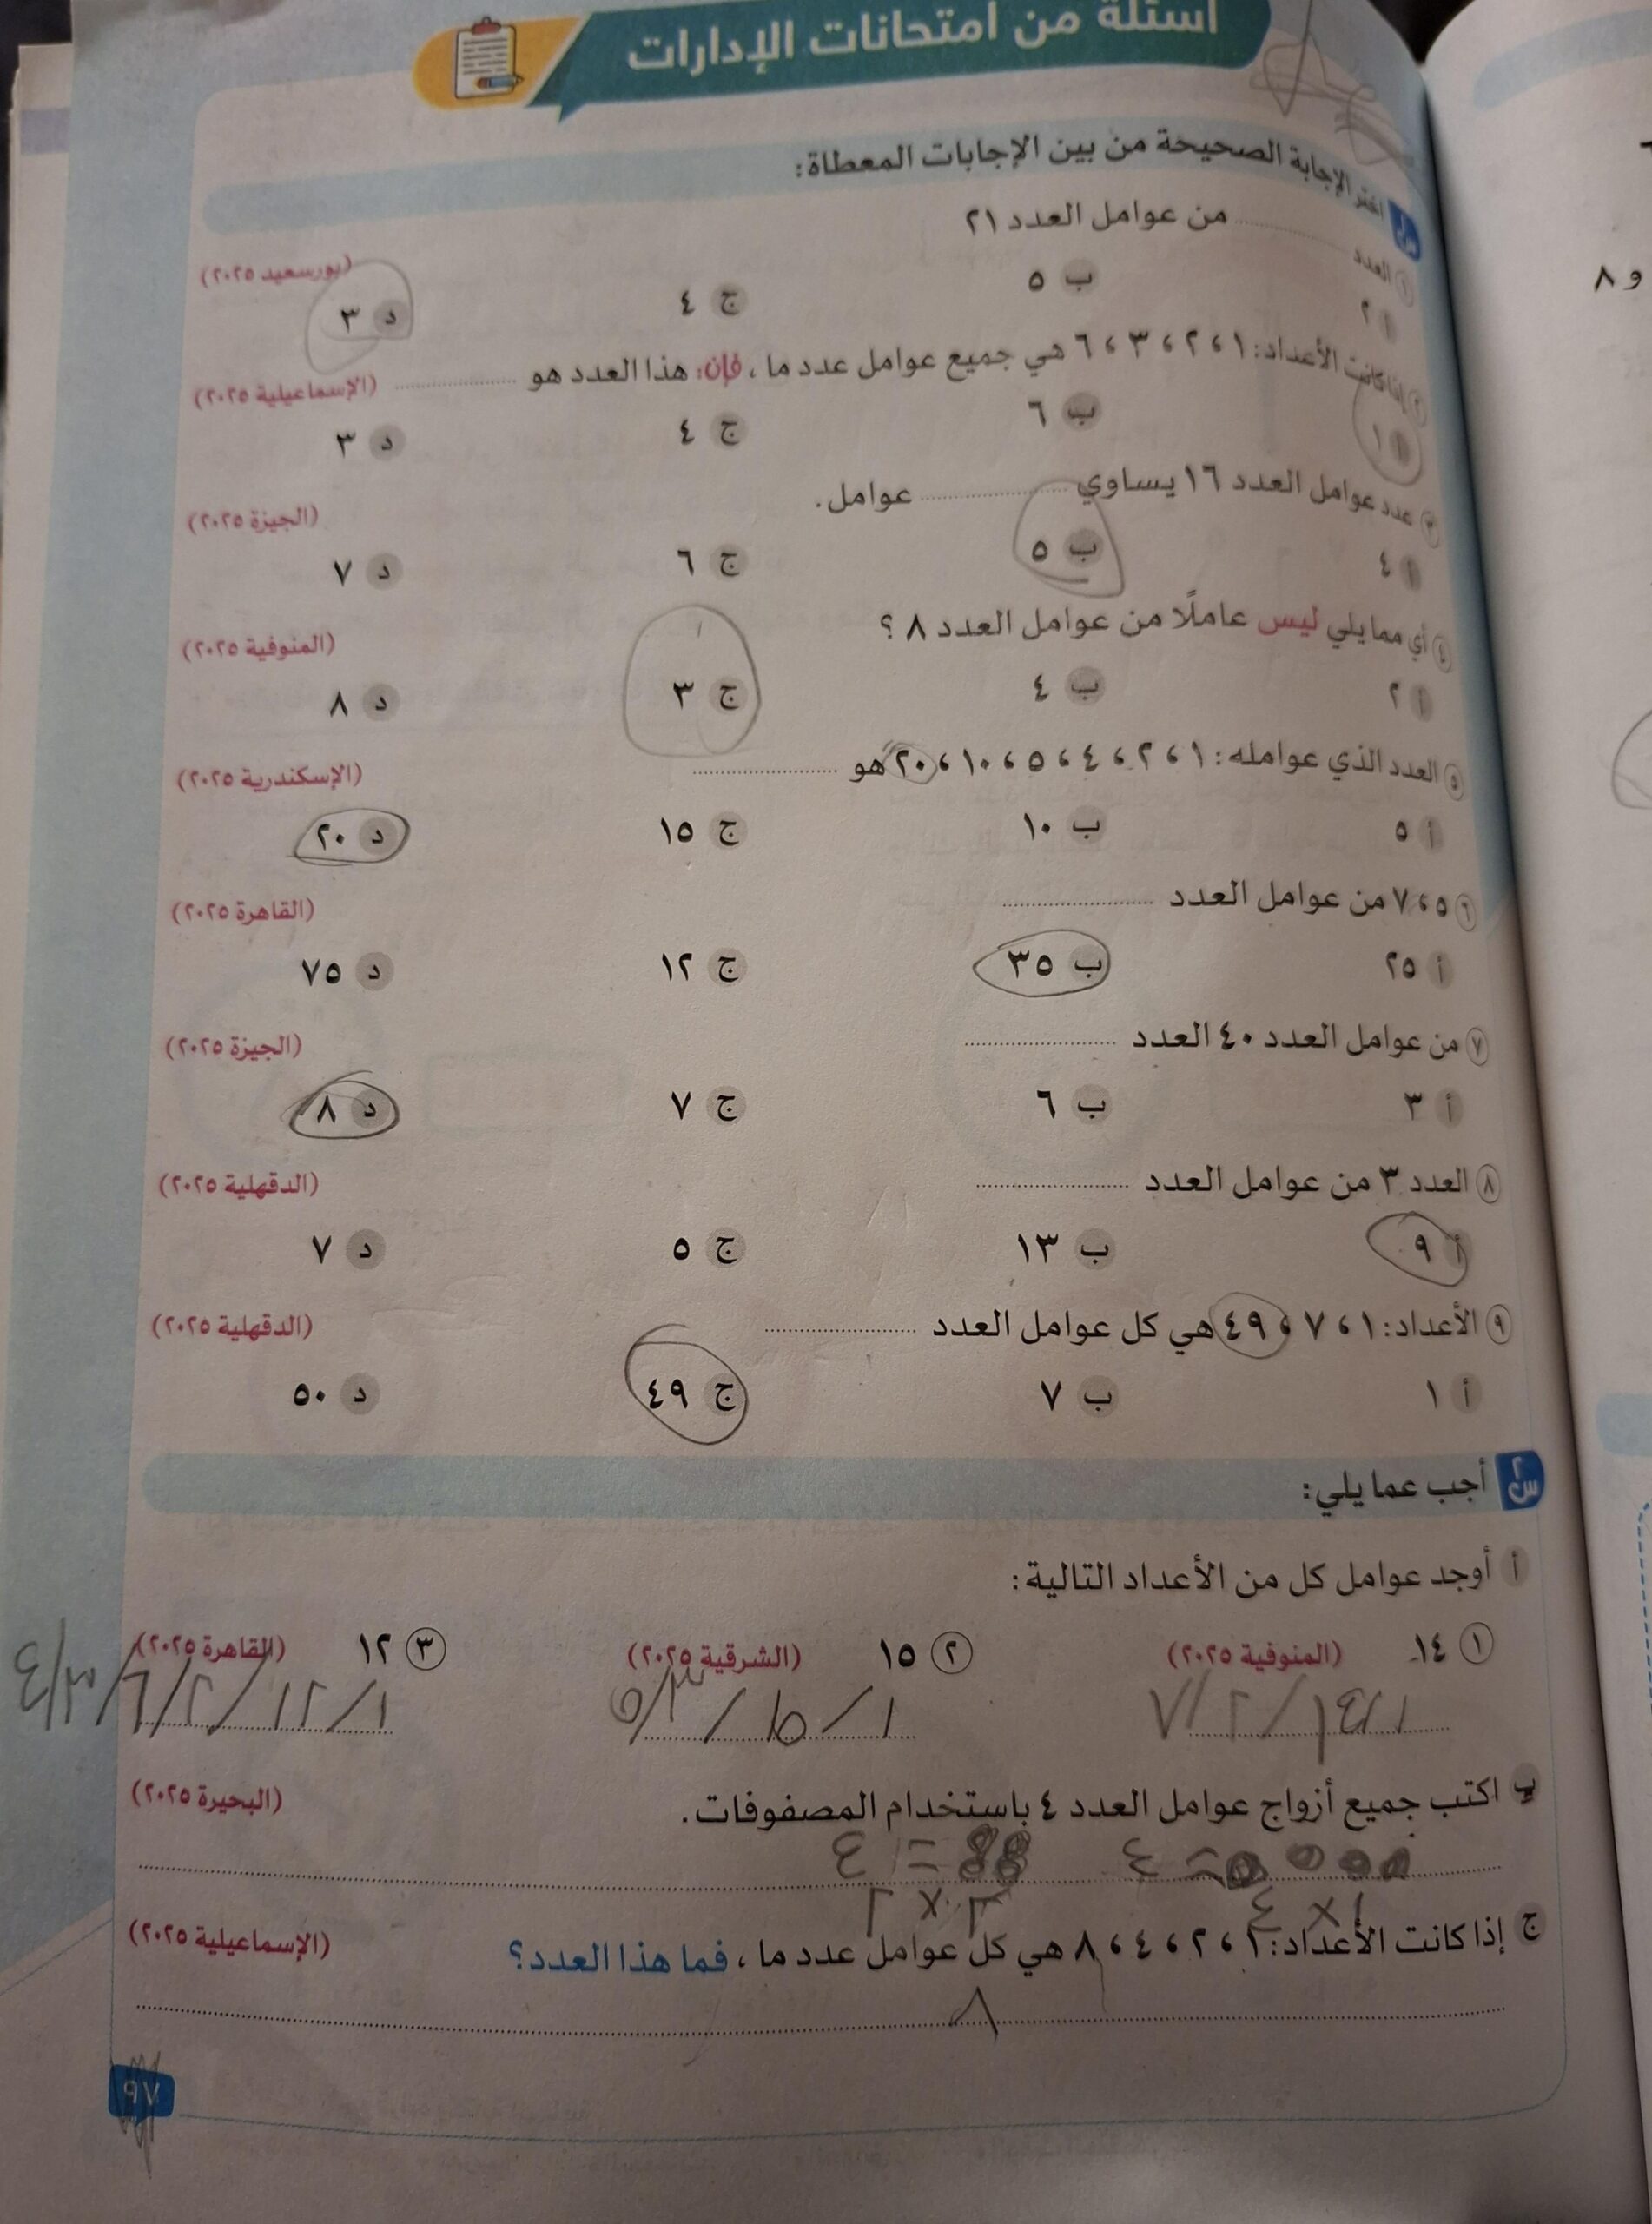 أسئلة من امتحانات الإدارات
س١ اختر الإجابة الصحيحة من بين الإجابات المعطاة:
١ العدد .......... من عوامل العدد ٢١ (بورسعيد ٢٠٢٥)
أ ٢ ب ٥ ج ٤ د ٣
٢ إذا كانت الأعداد: ١ ، ٢ ، ٣ ، ٦ هي جميع عوامل عدد ما ، فإن: هذا العدد هو .......... (الإسماعيلية ٢٠٢٥)
أ ١ ب ٦ ج ٤ د ٣
٣ عدد عوامل العدد ١٦ يساوي .......... عوامل. (الجيزة ٢٠٢٥)
أ ٤ ب ٥ ج ٦ د ٧
٤ أي مما يلي ليس عاملًا من عوامل العدد ٨ ؟ (المنوفية ٢٠٢٥)
أ ٢ ب ٤ ج ٣ د ٨
٥ العدد الذي عوامله: ١ ، ٢ ، ٤ ، ٥ ، ١٠ ، ٢٠ هو .......... (الإسكندرية ٢٠٢٥)
أ ٥ ب ١٠ ج ١٥ د ٢٠
٦ ٥ ، ٧ من عوامل العدد .......... (القاهرة ٢٠٢٥)
أ ٢٥ ب ٣٥ ج ١٢ د ٧٥
٧ من عوامل العدد ٤٠ العدد .......... (الجيزة ٢٠٢٥)
أ ٣ ب ٦ ج ٧ د ٨
٨ العدد ٣ من عوامل العدد .......... (الدقهلية ٢٠٢٥)
أ ٩ ب ١٣ ج ٥ د ٧
٩ الأعداد: ١ ، ٧ ، ٤٩ هي كل عوامل العدد .......... (الدقهلية ٢٠٢٥)
أ ١ ب ٧ ج ٤٩ د ٥٠
س٢ أجب عما يلي:
أ أوجد عوامل كل من الأعداد التالية:
١ ١٤ (المنوفية ٢٠٢٥) ٢ ١٥ (الشرقية ٢٠٢٥) ٣ ١٢ (القاهرة ٢٠٢٥)
١/١٤/٢/٧ ١/١٥/٣/٥ ١/١٢/٢/٦/٣/٤
ب اكتب جميع أزواج عوامل العدد ٤ باستخدام المصفوفات. (البحيرة ٢٠٢٥)
= ٤ = ٤
١ × ٤ ٢ × ٢
ج إذا كانت الأعداد: ١ ، ٢ ، ٤ ، ٨ هي كل عوامل عدد ما ، فما هذا العدد؟ (الإسماعيلية ٢٠٢٥)
٨
٩٧
و ٨